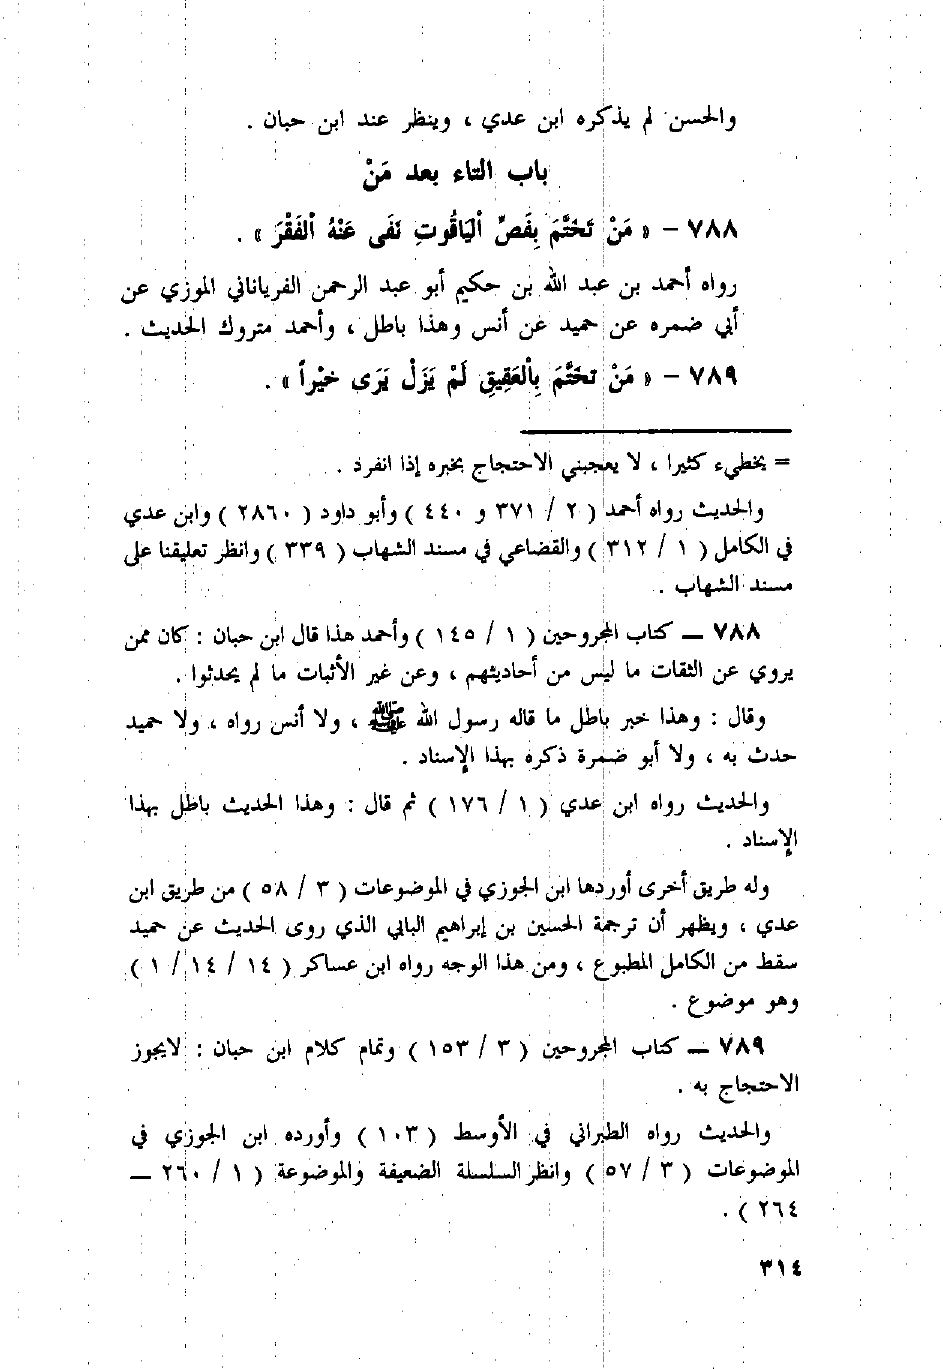 والحسن لم يذكره ابن عدي ، وينظر عند ابن حبان .
باب التاء بعد مَنْ
٧٨٨ – « مَنْ تَخَتَّمَ بِفَصِّ اْليَاقُوتِ نَفَى عَنْهُ اْلفَقْرَ » .
رواه أحمد بن عبد الله بن حكيم أبو عبد الرحمن الفرياناني الموزي عن
أبي ضمره عن حميد عن أنس وهذا باطل ، وأحمد متروك الحديث .
٧٨٩ – « مَنْ تَخَتَّمَ بِاْلعَقِيقِ لَمْ يَزَلْ يَرَى خَيْراً » .
= يخطيء كثيرا ، لا يعجبني الاحتجاج بخبره إذا انفرد .
والحديث رواه أحمد ( ٢ / ٣٧١ و ٤٤٠ ) وأبو داود ( ٢٨٦٠ ) وابن عدي
في الكامل ( ١ / ٣١٢ ) والقضاعي في مسند الشهاب ( ٣٣٩ ) وانظر تعليقنا على
مسند الشهاب .
٧٨٨ ــ كتاب المجروحين ( ١ / ١٤٥ ) وأحمد هذا قال ابن حبان : كان ممن
يروي عن الثقات ما ليس من أحاديثهم ، وعن غير الأثبات ما لم يحدثوا .
وقال : وهذا خبر باطل ما قاله رسول الله ﷺ ، ولا أنس رواه ، ولا حميد
حدث به ، ولا أبو ضمرة ذكره بهذا الإسناد .
والحديث رواه ابن عدي ( ١ / ١٧٦ ) ثم قال : وهذا الحديث باطل بهذا
الإسناد .
وله طريق أخرى أوردها ابن الجوزي في الموضوعات ( ٣ / ٥٨ ) من طريق ابن
عدي ، ويظهر أن ترجمة الحسين بن إبراهيم البابي الذي روى الحديث عن حميد
سقط من الكامل المطبوع ، ومن هذا الوجه رواه ابن عساكر ( ١٤ / ١٤ / ١ )
وهو موضوع .
٧٨٩ ــ كتاب المجروحين ( ٣ / ١٥٣ ) وتمام كلام ابن حبان : لايجوز
الاحتجاج به .
والحديث رواه الطبراني في الأوسط ( ١٠٣ ) وأورده ابن الجوزي في
الموضوعات ( ٣ / ٥٧ ) وانظر السلسلة الضعيفة والموضوعة ( ١ / ٢٦٠ ــ
٢٦٤ ) .
٣١٤